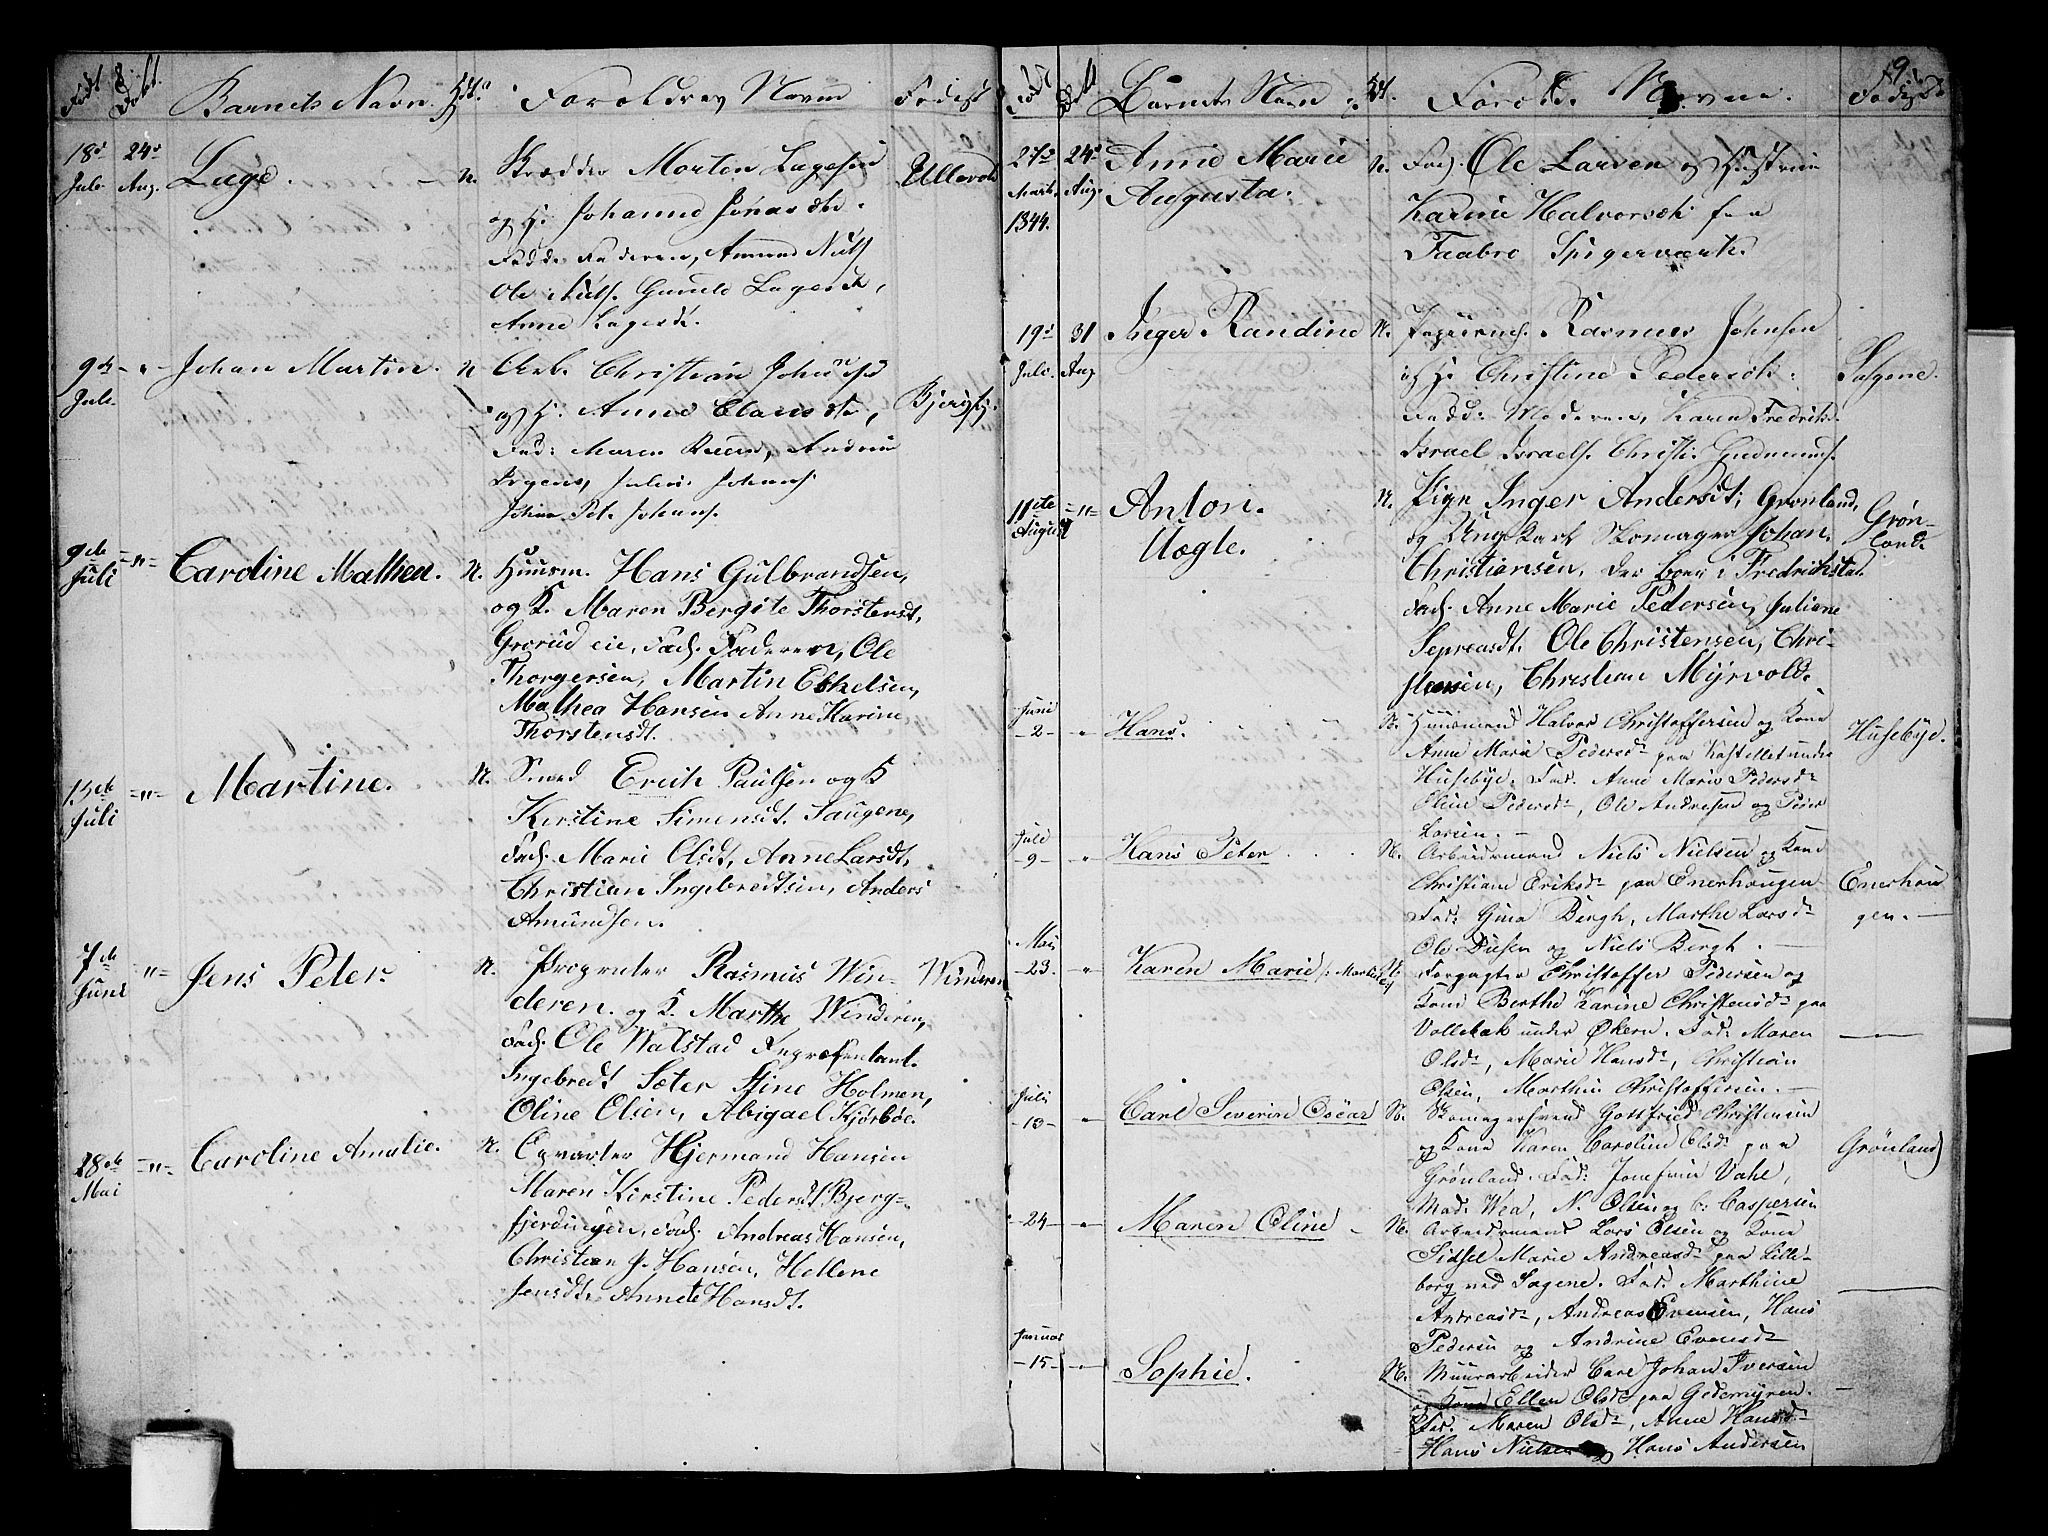 Födt
Döbt.
Barnets Navn.
Forældres Navne
Födest
18de
Juli
24de
Aug.
Lage.
N.
Skrædder Morten Lagesen
og H. Johanne Jonasdtr.
Fadd. Faderen, Amund Niels.
Ole Niels. Gunild Lagesdt,
Anne Lagesdt.
Ullevold
9de
Juli
Johan Martin.
N
Arb. Christian Johns
og H. Anne Clausdtr,
Fad: Maren
Jörgens, Johans.
Johan Pet. Johans.
Bjergfj.
9de
Juli
="=
Caroline Mathea.
N.
Huusm. Hans Gulbrandsen,
og K. Maren Bergite Thorstensdt,
Grorud eie, Fad. Faderen, Ole
Thorgersen, Martin Eskelsen,
Mathea Hansen Anne Karine
Thorstensdt.
13de
Juli
="=
Martine.
N.
Smed Erich Paulsen og K
Kirstine Simensdt. Saugene,
Fad. Marie Olsdt, Anne Larsdt,
Christian Ingebredtsen, Anders
Amundsen.
7de
Juni
="=
Jens Peter.
N.
Proprietær Rasmus Win-
deren. og K. Marthe Winderen,
Fad. Ole Walstad Repræsentant.
Ingebredt Sæter Stine Holmen,
Oline Olsen, Abigael Kjörboe.
Winderen
28de
Mai
="=
Caroline Amalie.
N.
Opvarter Hjermand Hansen
Maren Kirstine Pedersdt Bjerg-
fjerdingen, Fad. Andreas Hansen,
Christian J. Hansen, Hellene
Jensdt. Annete Hansdt.
Födt
Döbt
Barnets Navn
Foræld. Navne.
9.
Födest
27de
Marts
1844.
24de
Aug.
Anne Marie
Augusta.
N.
Fad. Ole Larsen og Hustrue
Karine Halvorsdt: fra
Faabro Spigerværk.
19de
Juli
31
Aug
Inger Randine
N.
Papiirm. Rasmus Johnsen
og H. Christine Pedersdt:
Fadd: Moderen, Karen Fredriks.
Israel Israels. Christi. Gudmunds.
Sagene
11cte
August
="=
Anton.
Uægte.
N.
Pige Inger Andersdt; Grönland,
og Ung Karl Skomager Johan
Christiansen, der boer i Fredrichstad.
Fad. Anne Marie Pedersen, Juliane
Sepreasdt. Ole Christensen, Chri-
stensen, Christian Myrvold.
Grön-
land.
Juni
-2-
"
Hans.
N.
Huusmand Halvor Christoffersen og Kone
Anne Maria Pedersdr paa Kastellet under
Husebye. Fad. Anne Marie Pedersdr
Oline Pedersdr, Ole Andresen og Peder
Larsen. -
Husebye.
Juli
-9-
"
Hans Peter
N.
Arbeidsmand Niels Nielsen og Kone
Christiane Eriksdr paa Enerhougen
Fad: Gina Bergh, Marthe Larsdr
Ole Olsen og Niels Bergh. -
Enerhou
gen. -
Mai
-23.
"
Karen Marie
N.
Forpagter Christoffer Pedersen og
Kone Berthe Karine Christensdr paa
Vollebæk under Økern. Fad. Maren
Olsdr, Marie Hansdr, Christian
Olsen, Marthin Christoffersen. -
Juli
-13-
"
Carl Severin Oscar
N.
Skomagersvend Gottfried Christensen
og Kone Karen Caroline Olsdr paa
Grönland. Fad: Josefine Vahl,
Mad. Wea, N. Olsen og C: Caspersen
Grönland
-24-
"
Maren Oline
N.
Arbeidsmand Lars Olsen og Kone
Sidsel Marie Andreasdr paa Lille-
borg ved Sagene. Fad. Marthine
Andreasdr, Andreas Evensen, Hans
Pedersen og Andrine Evensdr
Januar
-15-
"
Sophie.
N.
Muurarbeider Carl Johan Iversen
og Kone Ellen Olsdr paa Gedemyren.
Fad. Maren Olsdr, Anne Hansdr
Hans Nielsen og Hans Andersen